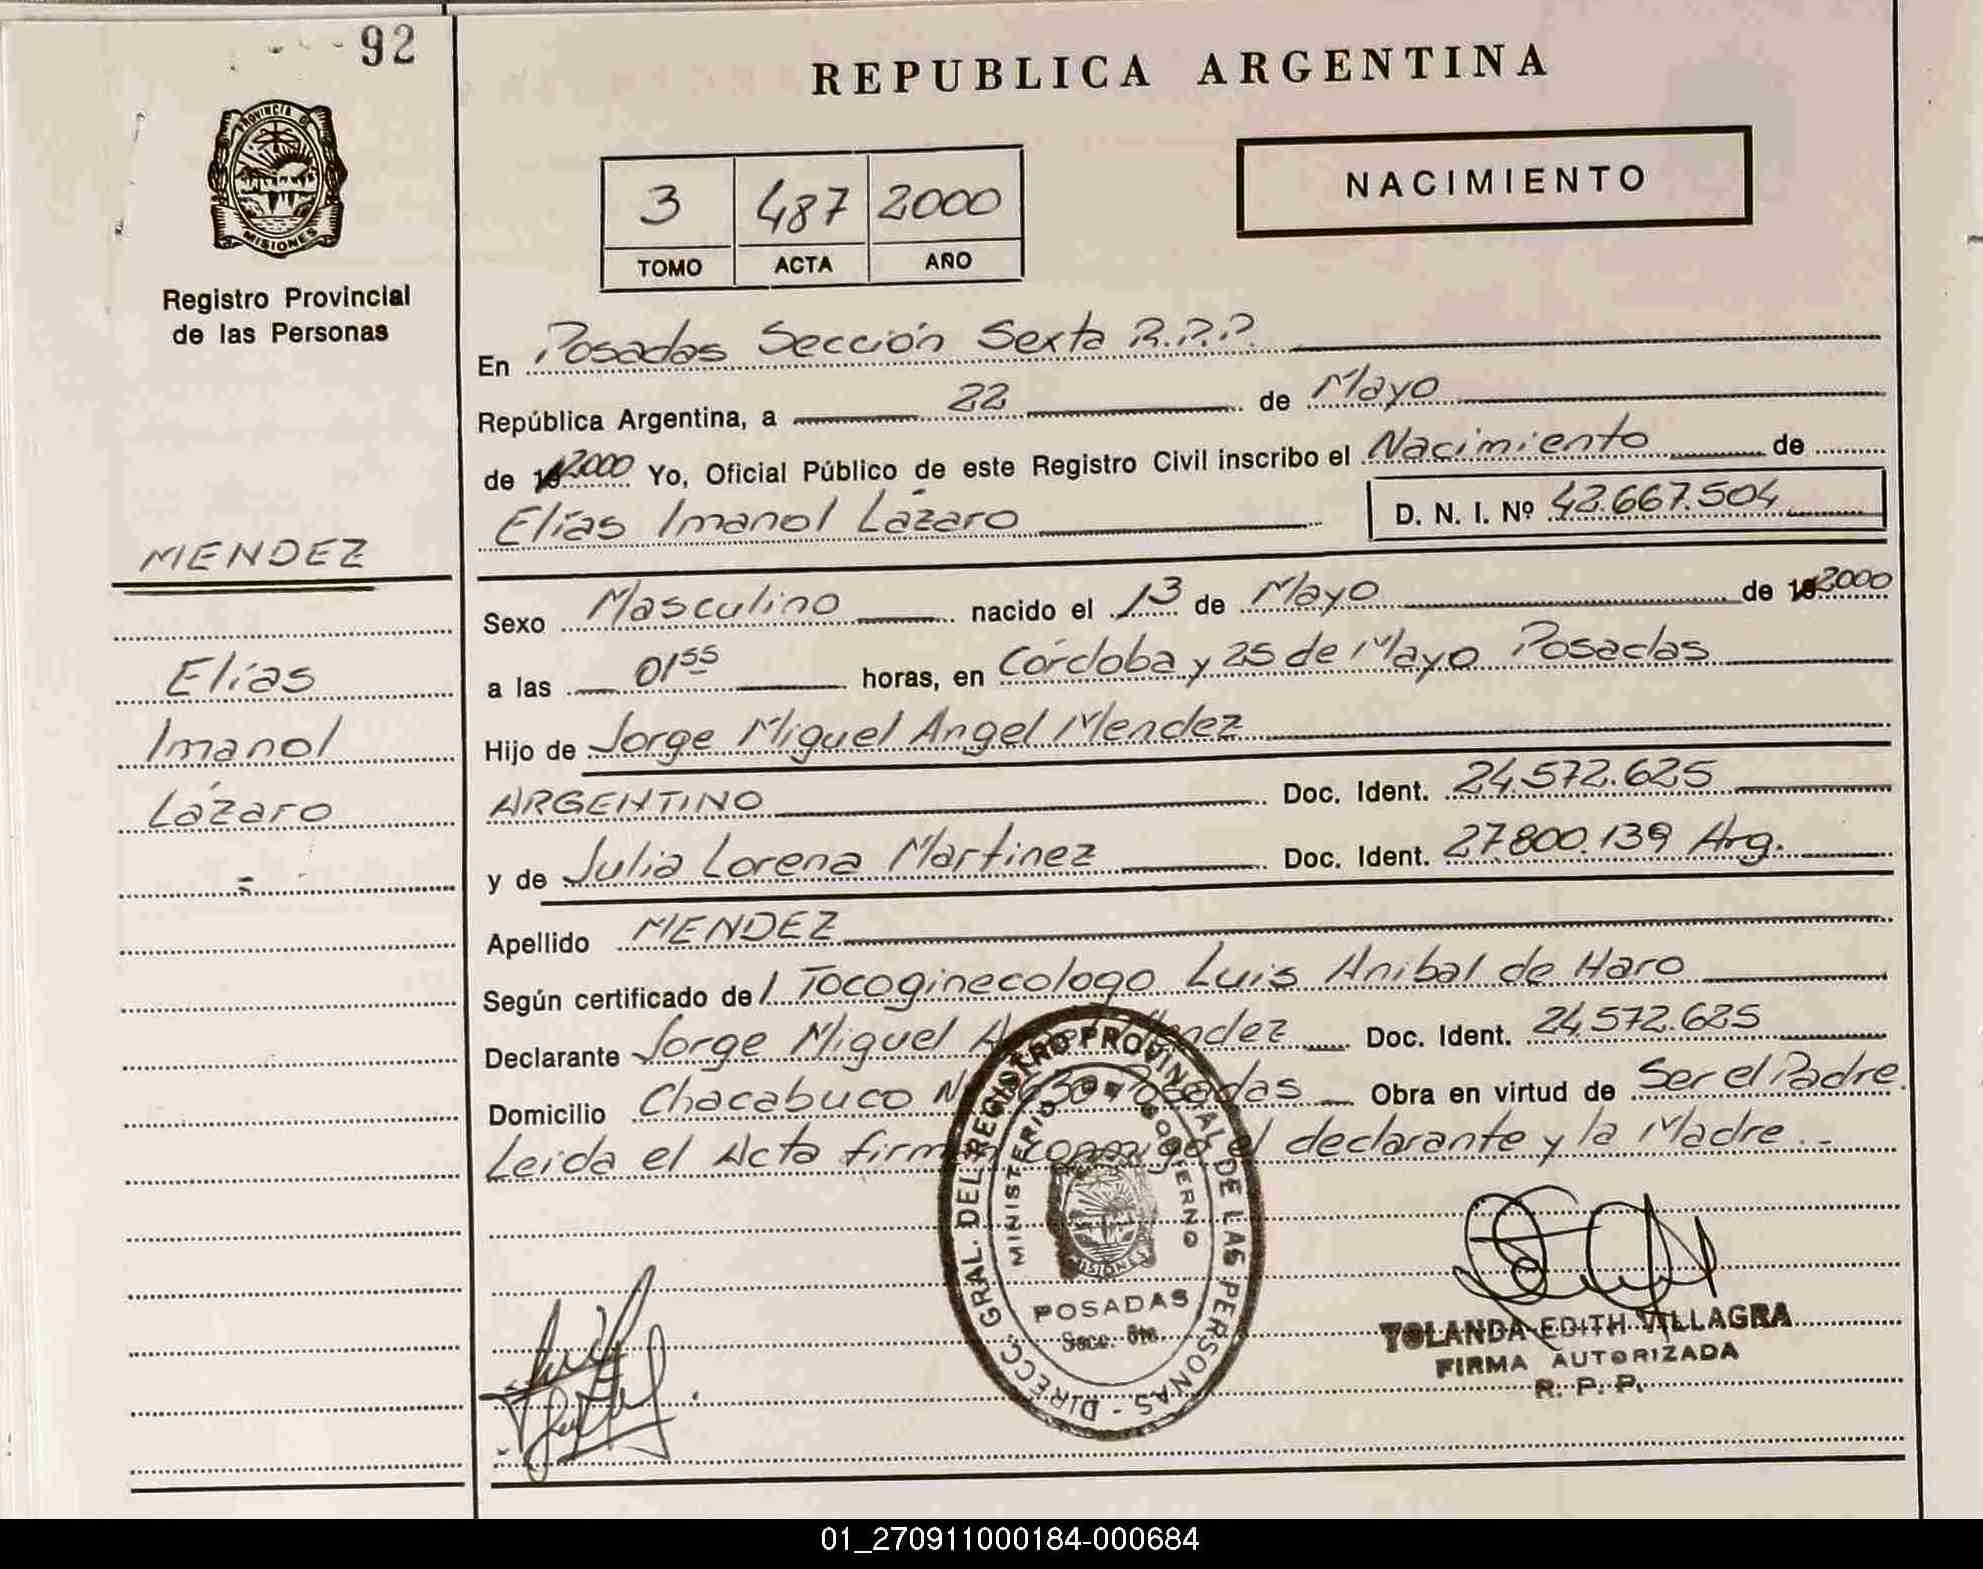 92
REPUBLICA ARGENTINA
PROVINCIA D
MISIONES
Registro Provincial
de las Personas
3 487 2000
TOMO ACTA AÑO
NACIMIENTO
En Posadas Sección Sexta R.P.P.
República Argentina, a 22 de Mayo
de 2000 Yo, Oficial Público de este Registro Civil inscribo el Nacimiento de
Elías Imanol Lázaro D. N. I. Nº 42.667.504
MENDEZ
Elías
Imanol
Lázaro
Sexo Masculino nacido el 13 de Mayo de 2000
a las 01 55 horas, en Córdoba y 25 de Mayo Posadas
Hijo de Jorge Miguel Angel Mendez
ARGENTINO Doc. Ident. 24.572.625
y de Julia Lorena Martinez Doc. Ident. 27.800.139 Arg.
Apellido MENDEZ
Según certificado de / Tocoginecologo Luis Anibal de Haro
Declarante Jorge Miguel Mendez Doc. Ident. 24.572.625
Domicilio Chacabuco Posadas Obra en virtud de Ser el Padre.
Leida el Acta firman conmigo el declarante y la Madre.-
DIRECC. GRAL. DEL REGISTRO PROVINCIAL DE LAS PERSONAS.-
MINISTERIO DE GOBIERNO
MISIONES
POSADAS
Secc. 6ta.
YOLANDA EDITH VILLAGRA
FIRMA AUTORIZADA
R. P. P.
01_270911000184-000684